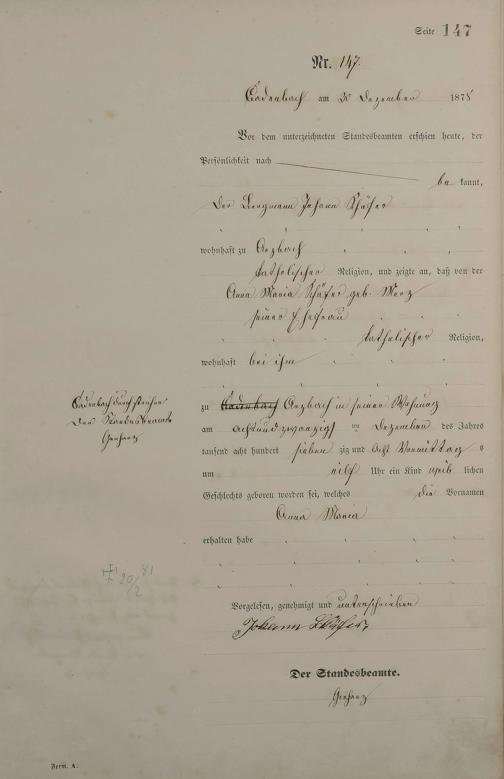 Seite 147
Nr. 147.
Cadenbach am 30 Dezember 1878
Vor dem unterzeichneten Standesbeamten erschien heute, der
Persönlichkeit nach
be kannt,
Der Bergmann Johann Schäfer
wohnhaft zu Arzbach
katholischer Religion, und zeigte an, daß von der
Anna Maria Schäfer geb. Merz
seiner Ehefrau
katholischer Religion,
wohnhaft bei ihm
Cadenbach durchstrichen
Der Standesbeamte
Gerharz
zu Cadenbach Arzbach in seiner Wohnung
am achtundzwanzigsten Dezember des Jahres
tausend acht hundert sieben zig und acht Vormittag s
um eilf Uhr ein Kind weib lichen
Geschlechts geboren worden sei, welches die Vornamen
Anna Maria
erhalten habe
20/2 81
Vorgelesen, genehmigt und unterschrieben
Johann Schäfer,
Der Standesbeamte.
Gerharz
Form. A.